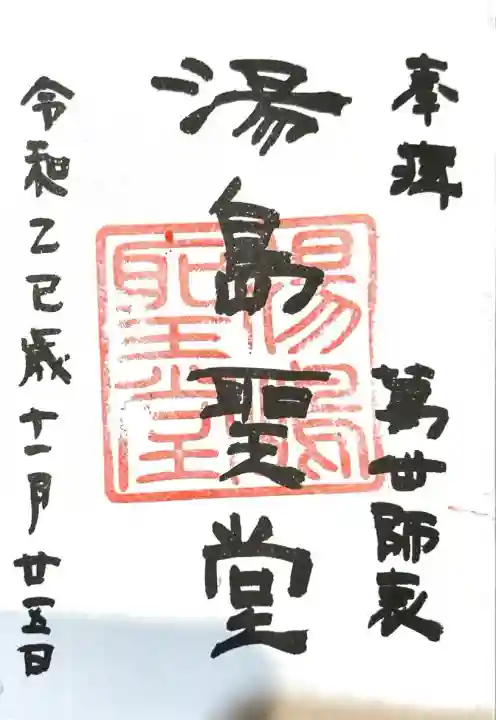 奉拜
萬世師表
湯島聖堂
湯島聖堂
令和乙巳歳十一月廿五日